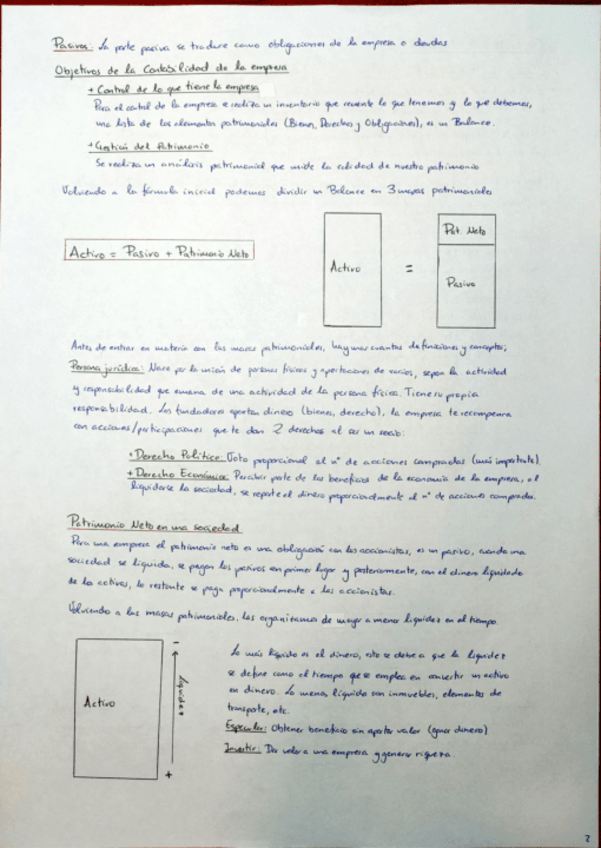 Pasivos: La parte pasiva se traduce como obligaciones de la empresa o deudas
Objetivos de la Contabilidad de la empresa
+ Control de lo que tiene la empresa
Para el control de la empresa se realiza un inventario que muestre lo que tenemos y lo que debemos,
una lista de los elementos patrimoniales (Bienes, Derechos y Obligaciones), es un Balance.
+ Gestión del Patrimonio
Se realiza un análisis patrimonial que mide la calidad de nuestro patrimonio
Volviendo a la fórmula inicial podemos dividir un Balance en 3 masas patrimoniales
Activo = Pasivo + Patrimonio Neto
Activo
=
Pat. Neto
Pasivo
Antes de entrar en materia con las masas patrimoniales, hay unas cuantas definiciones y conceptos;
Persona jurídica: Nace por la unión de personas físicas y aportaciones de socios, separa la actividad
y responsabilidad que emana de una actividad de la persona física. Tiene su propia
responsabilidad. Los fundadores aportan dinero (bienes, derecho), la empresa te recompensa
con acciones/participaciones que te dan 2 derechos al ser un socio:
+ Derecho Político: Voto proporcional al nº de acciones compradas (más importante).
+ Derecho Económico: Percibir parte de los beneficios de la economía de la empresa, al
liquidarse la sociedad, se reparte el dinero proporcionalmente al nº de acciones compradas.
Patrimonio Neto en una sociedad
Para una empresa el patrimonio neto es una obligación con los accionistas, es un pasivo, cuando una
sociedad se liquida, se pagan los pasivos en primer lugar y posteriormente, con el dinero liquidado
de los activos, lo restante se paga proporcionalmente a los accionistas.
Volviendo a las masas patrimoniales, las organizamos de mayor a menor liquidez en el tiempo.
Activo
-
Liquidez
+
Lo más líquido es el dinero, esto se debe a que la liquidez
se define como el tiempo que se emplea en convertir un activo
en dinero. Lo menos líquido son inmuebles, elementos de
transporte, etc.
Especular: Obtener beneficio sin aportar valor (ganar dinero)
Invertir: Dar valor a una empresa y generar riqueza.
2